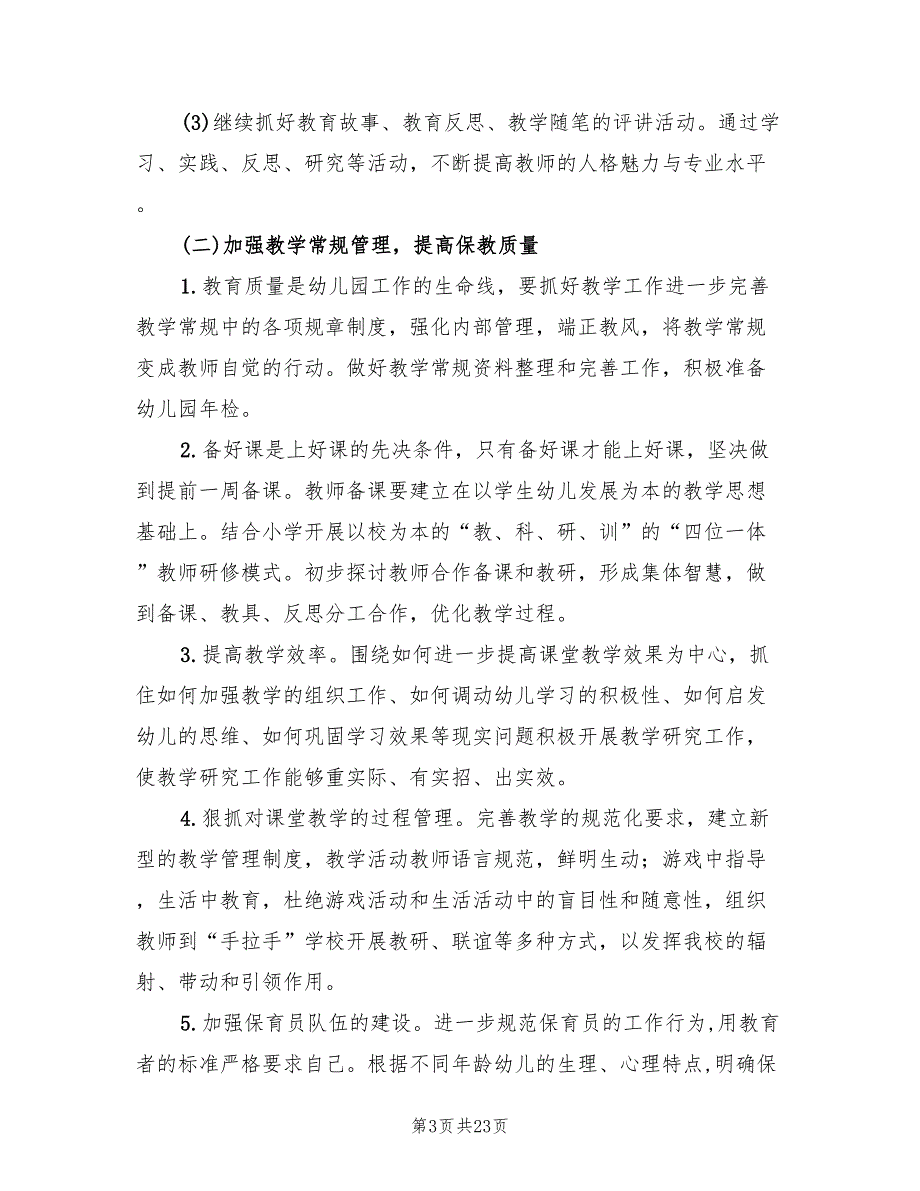 (3)继续抓好教育故事、教育反思、教学随笔的评讲活动。通过学
习、实践、反思、研究等活动，不断提高教师的人格魅力与专业水平
。
(二)加强教学常规管理，提高保教质量
1.教育质量是幼儿园工作的生命线，要抓好教学工作进一步完善
教学常规中的各项规章制度，强化内部管理，端正教风，将教学常规
变成教师自觉的行动。做好教学常规资料整理和完善工作，积极准备
幼儿园年检。
2.备好课是上好课的先决条件，只有备好课才能上好课，坚决做
到提前一周备课。教师备课要建立在以学生幼儿发展为本的教学思想
基础上。结合小学开展以校为本的“教、科、研、训”的“四位一体
”教师研修模式。初步探讨教师合作备课和教研，形成集体智慧，做
到备课、教具、反思分工合作，优化教学过程。
3.提高教学效率。围绕如何进一步提高课堂教学效果为中心，抓
住如何加强教学的组织工作、如何调动幼儿学习的积极性、如何启发
幼儿的思维、如何巩固学习效果等现实问题积极开展教学研究工作，
使教学研究工作能够重实际、有实招、出实效。
4.狠抓对课堂教学的过程管理。完善教学的规范化要求，建立新
型的教学管理制度，教学活动教师语言规范，鲜明生动；游戏中指导
，生活中教育，杜绝游戏活动和生活活动中的盲目性和随意性，组织
教师到“手拉手”学校开展教研、联谊等多种方式，以发挥我校的辐
射、带动和引领作用。
5.加强保育员队伍的建设。进一步规范保育员的工作行为,用教育
者的标准严格要求自己。根据不同年龄幼儿的生理、心理特点,明确保
第3页共23页